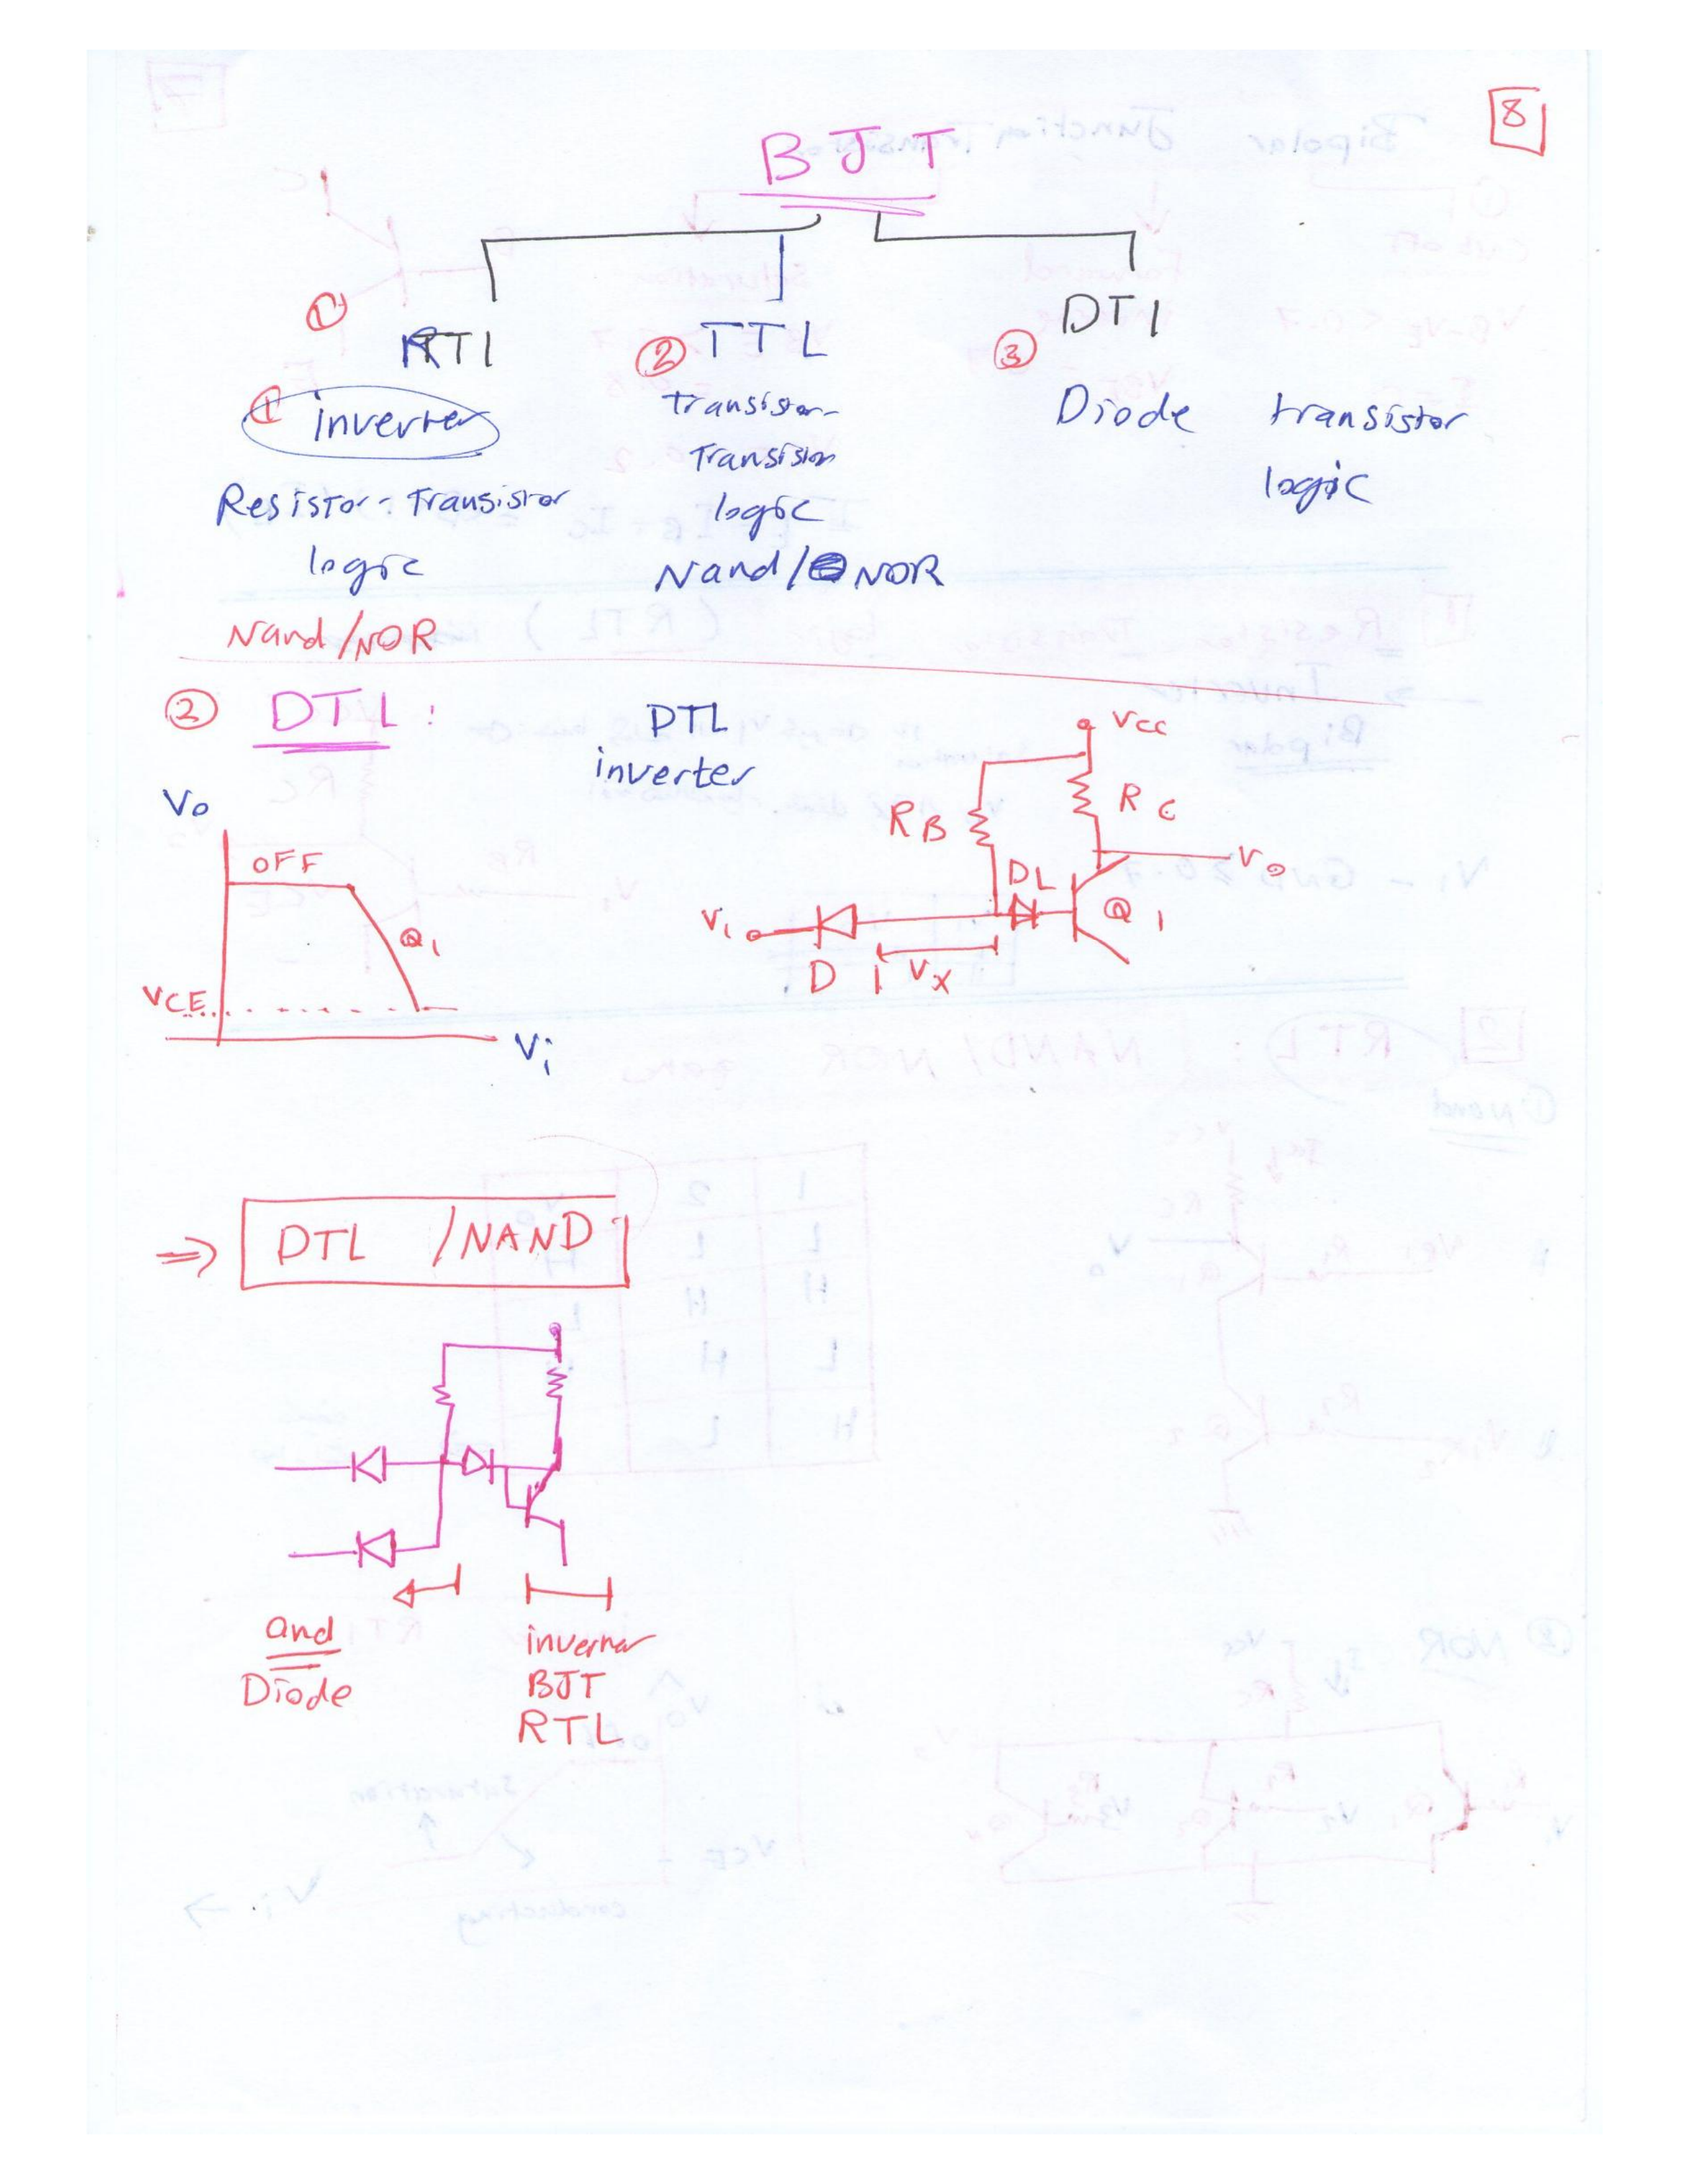 8
BJT
① RTL
② TTL
③ DTL
① inverter
Resistor-Transistor
logic
Nand/NOR
Transistor-
Transistor
logic
Nand/NOR
Diode transistor
logic
② DTL:
DTL
inverter
Vo
OFF
Q1
VCE
Vi
Vcc
RB
RC
DL
Vo
Vi
Q1
D
Vx
⇒ DTL /NAND
and
Diode
inverter
BJT
RTL